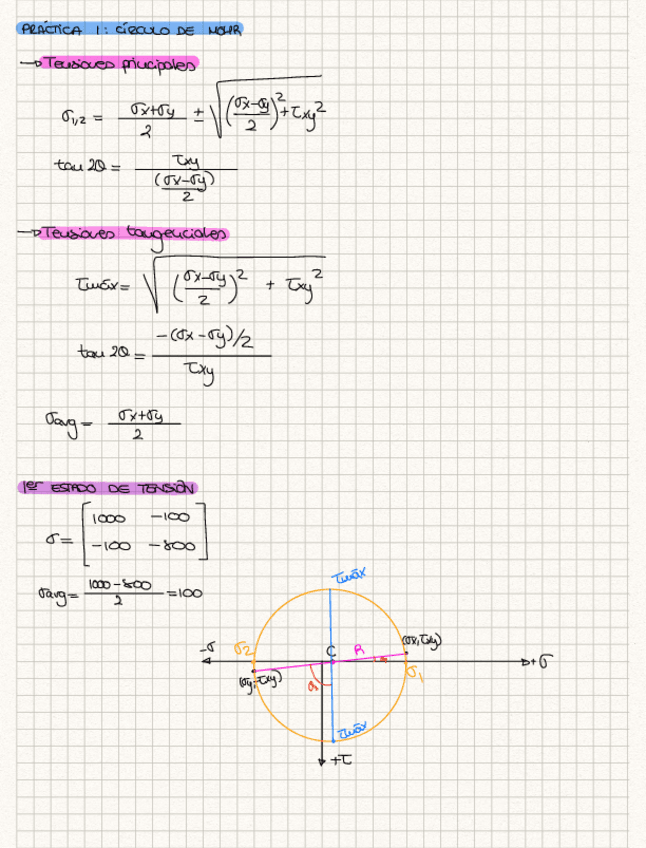 PRÁCTICA 1: CÍRCULO DE MOHR
→ Tensiones principales
σ1,2 = (σx+σy)/2 ± √(((σx-σy)/2)² + τxy²)
tan 2θ = τxy / ((σx-σy)/2)
→ Tensiones tangenciales
τmáx = √(((σx-σy)/2)² + τxy²)
tan 2θ = -(σx-σy)/2 / τxy
σavg = (σx+σy)/2
1er ESTADO DE TENSIÓN
σ = [1000 -100
-100 -800]
σavg = (1000-800)/2 = 100
τmáx
-σ σ2 C R (σx,τxy) +σ
(σy,-τxy) σ1
τmáx
+τ